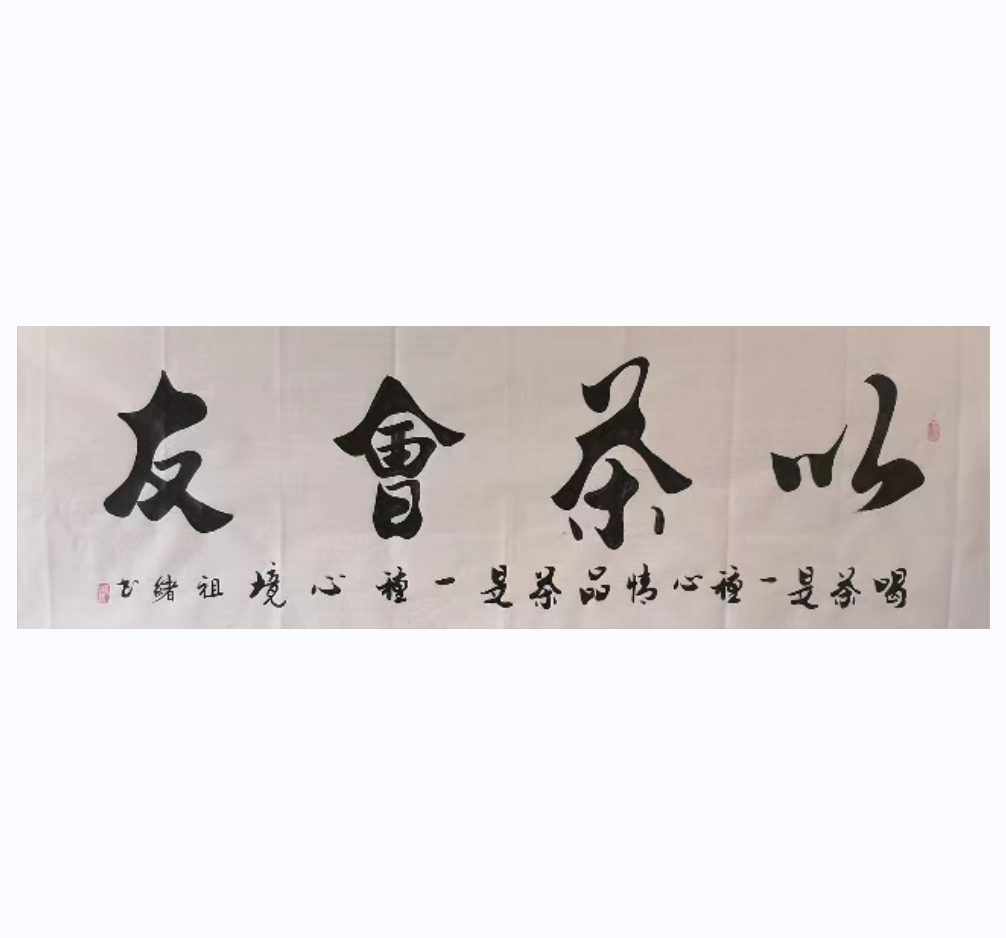 以茶會友
喝茶是一種心情品茶是一種心境祖緒书